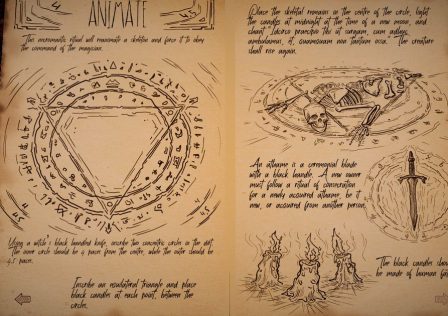 ANIMATE
This necromantic ritual will reanimate a skeleton and force it to obey
the command of the magician.
Using a witch's black handled knife, inscribe two concentric circles in the dirt.
The inner circle should be 4 paces from the center, while the outer should be
4.5 paces.
Inscribe an equilateral triangle and place
black candles at each point, between the
circles.
Place the skeletal remains in the centre of the circle, light
the candles at midnight at the time of a new moon, and
chant "Idcirco praecipio tibi ut surgam, cum
ambulamus, et, quamquam non tantum ossa." The creature
shall rise again.
An athame is a ceremonial blade
with a black handle. A new owner
must follow a ritual of consecration
for a newly acquired athame, be it
new, or acquired from another person.
The black candles should
be made of human
4
5
4.5